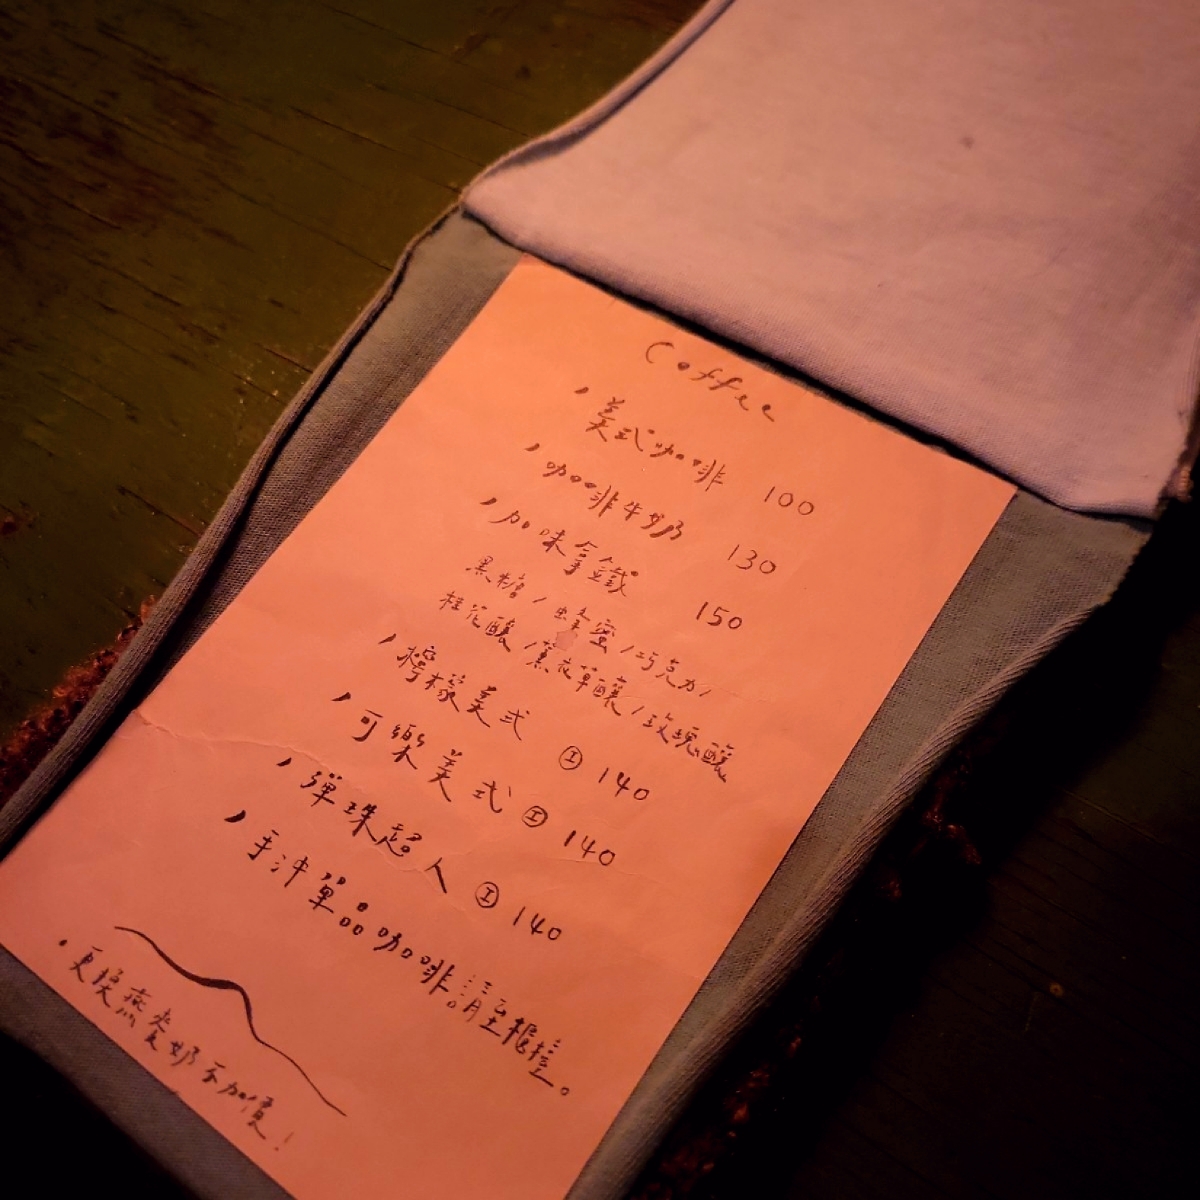 Coffee
美式咖啡 100
咖啡牛奶 130
加味拿鐵 150
黑糖/蜂蜜/巧克力/
桂花釀/薰衣草釀/玫瑰釀
檸檬美式 Ⓘ 140
可樂美式 Ⓘ 140
彈珠超人 Ⓘ 140
手沖單品咖啡請至櫃檯。
·更換燕麥奶不加價!